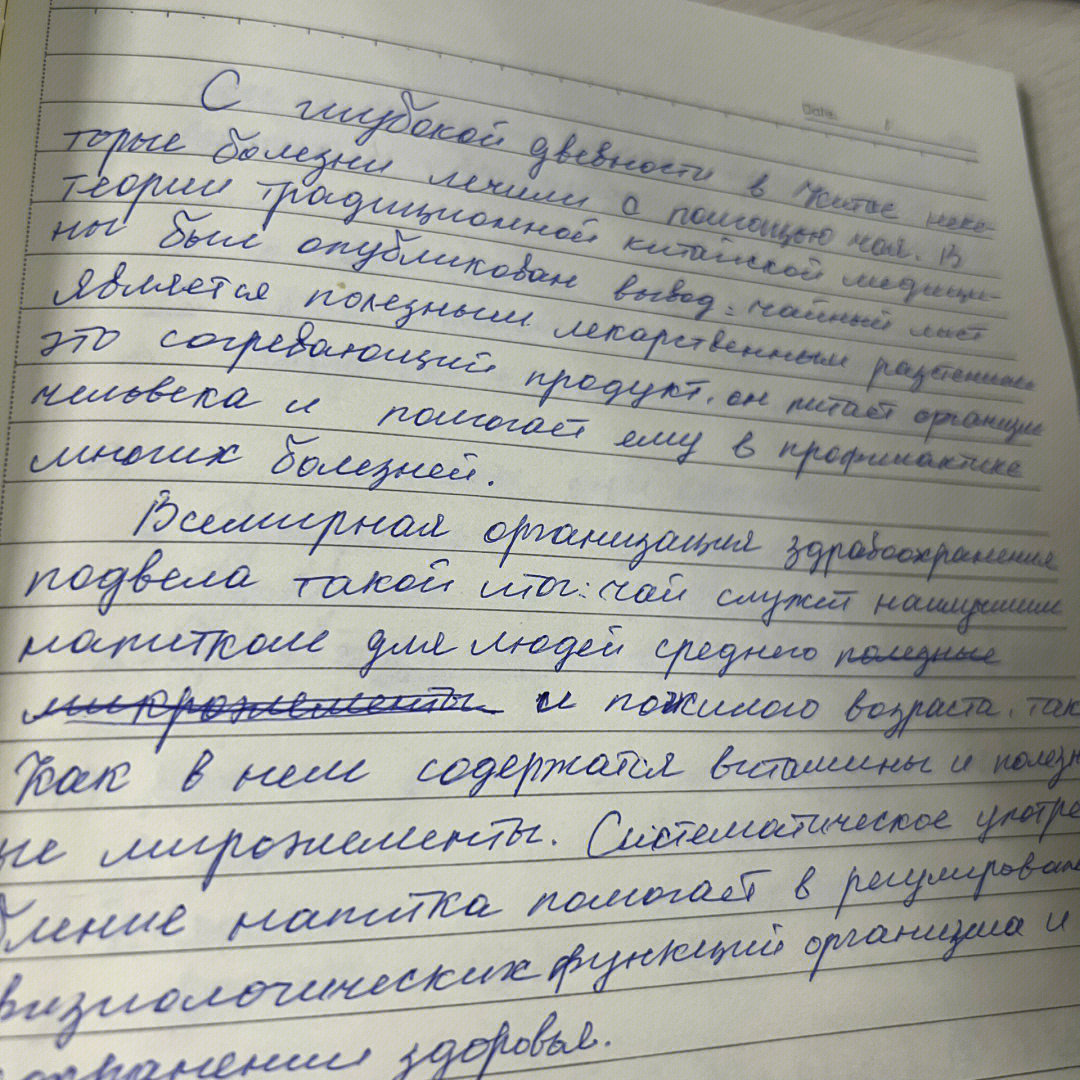 Date
С глубокой двевности в Китае неко-
торые болезни лечили с помощью чая. В
теории традиционной китайской медици-
ны был опубликован вывод: чайный лист
является полезным лекарственным растением
это согревающий продукт. он питает организм
человека и помогает ему в профилактике
многих болезней.
Всемирная организация здравоохранения
подвела такой итог: чай служит наилучшим
напитком для людей среднего полезные
микроэлементы и пожилого возраста. так
как в нем содержатся витамины и полезн
ые мироэлементы. Систематическое употре
бление напитка помогает в регулирован
физиологических функций организма и
сохранении здоровья.